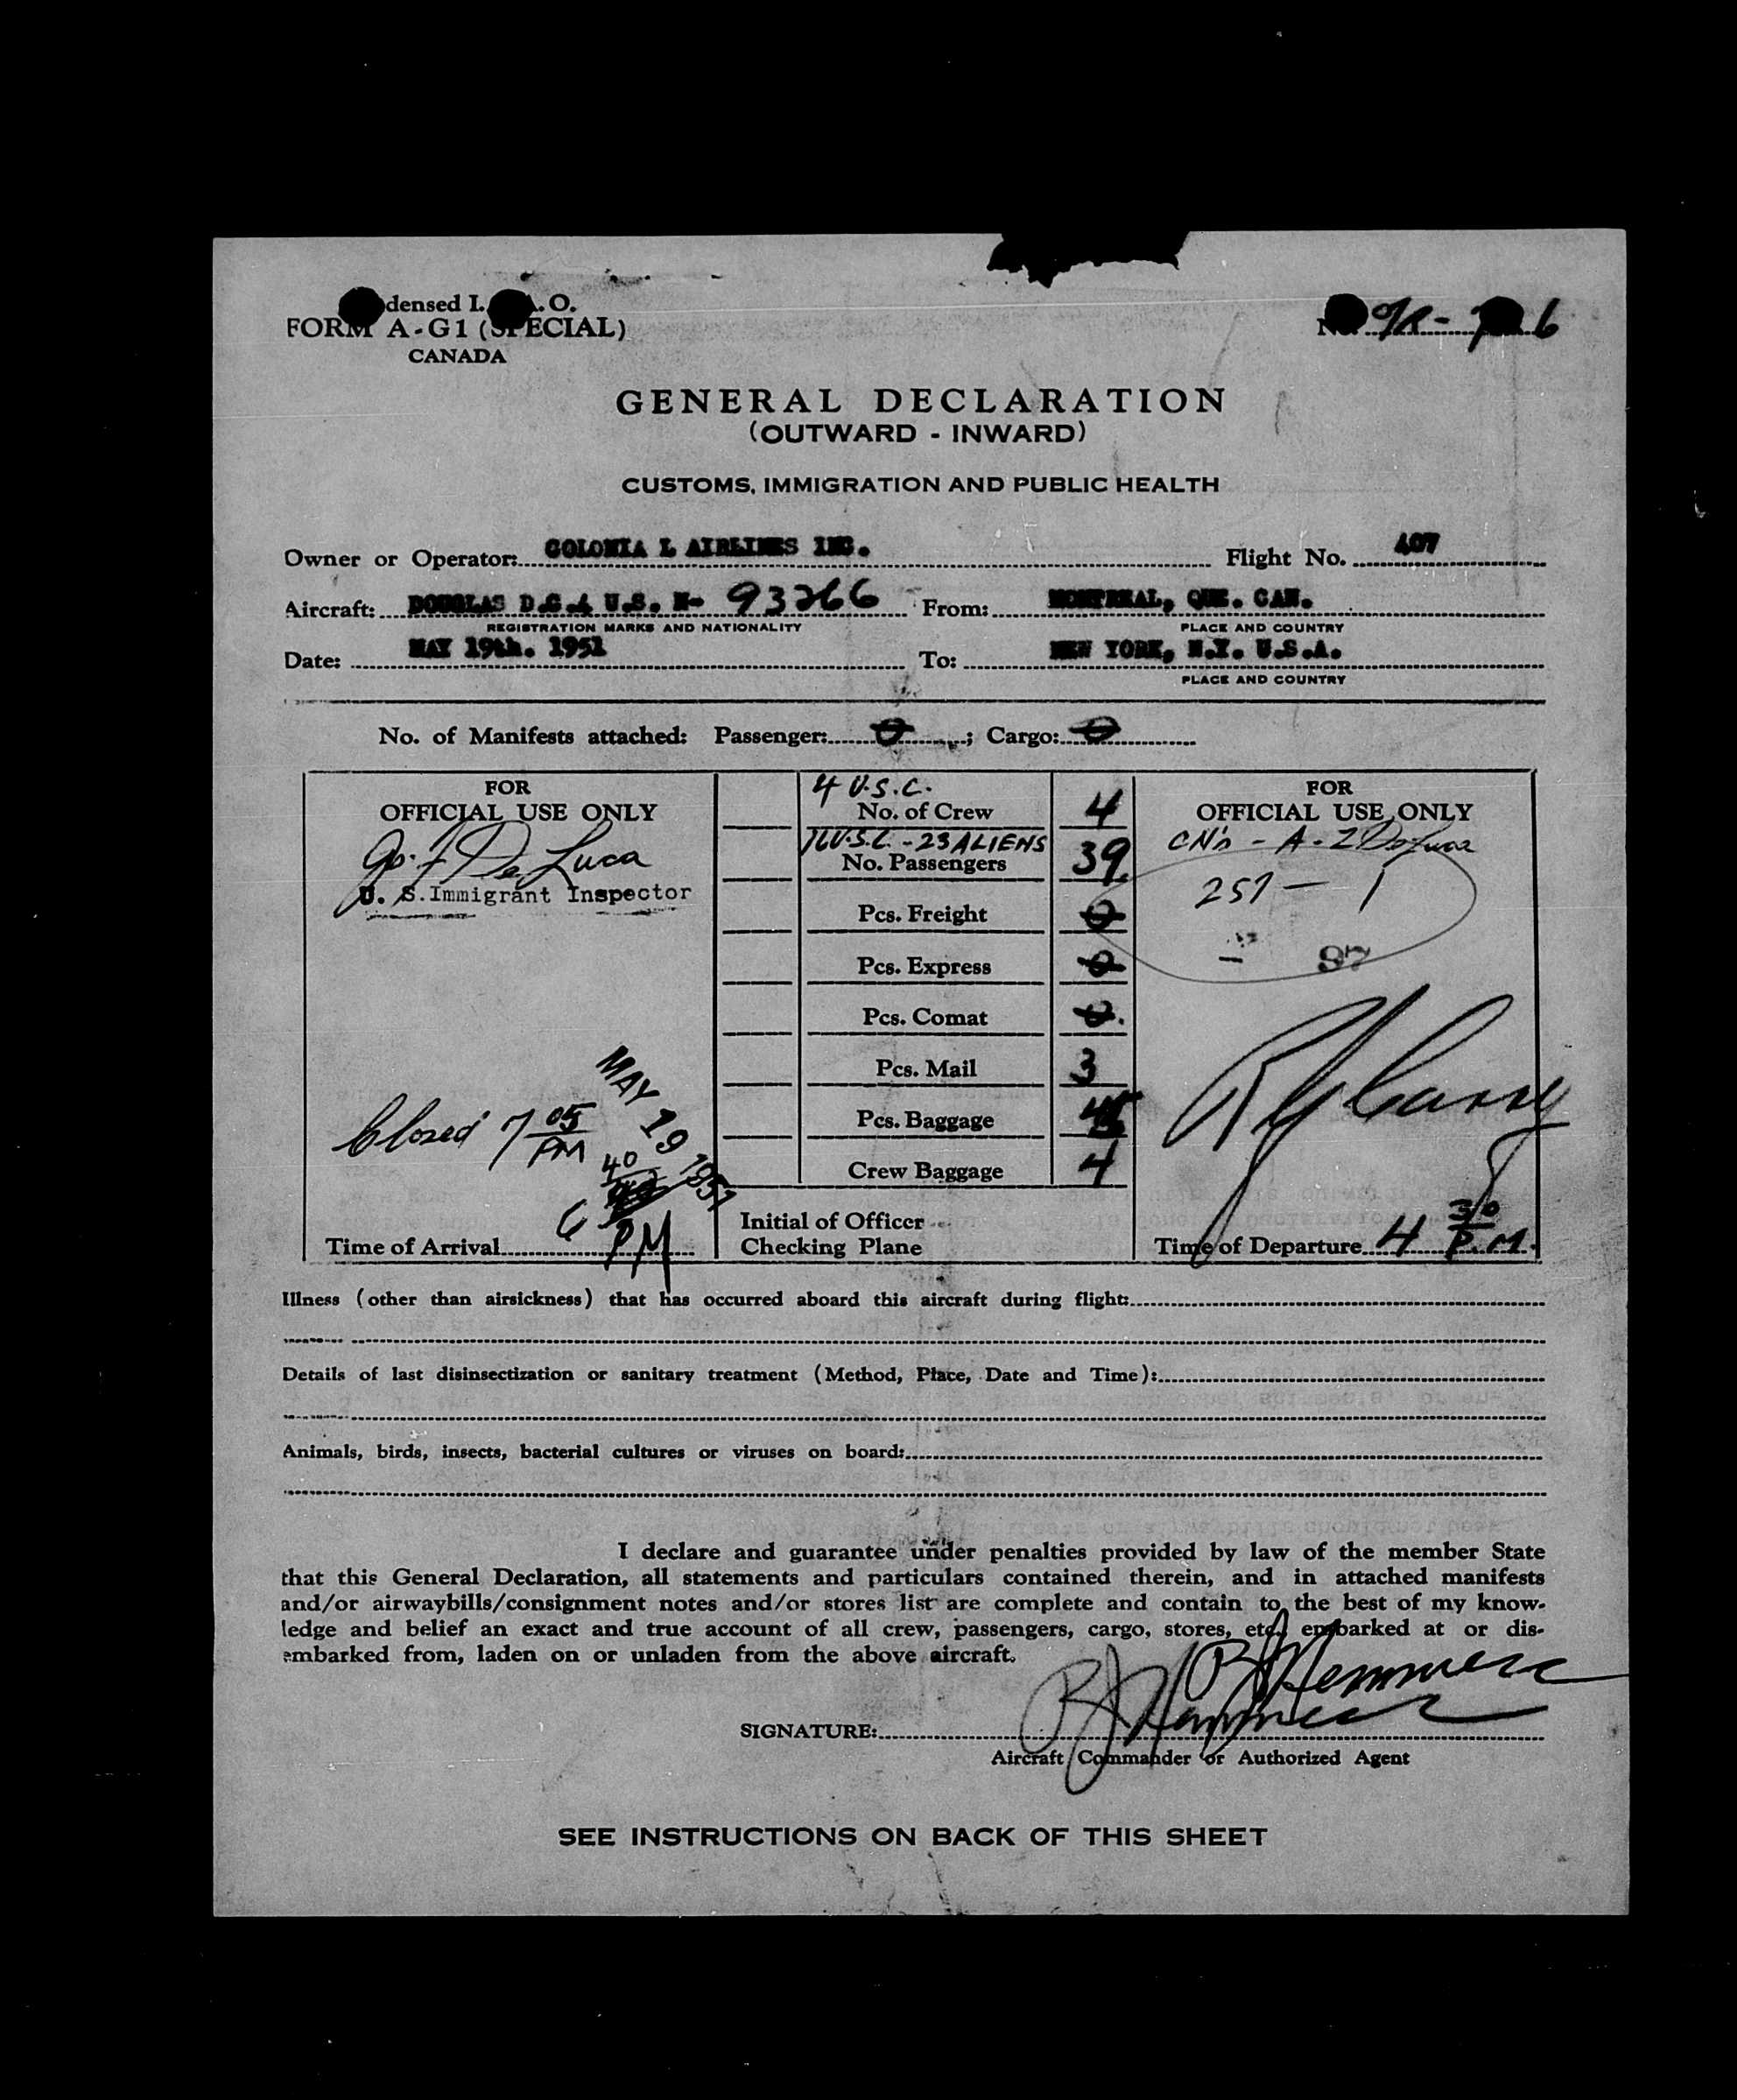 densed I. .O.
FORM A-G1 (SPECIAL)
CANADA
No. 6
GENERAL DECLARATION
(OUTWARD - INWARD)
CUSTOMS, IMMIGRATION AND PUBLIC HEALTH
Owner or Operator: COLONIA L AIRLINES INC. Flight No. 407
Aircraft: DOUGLAS D.C.4 U.S. N- 93266 From: MONTREAL, QUE. CAN.
REGISTRATION MARKS AND NATIONALITY PLACE AND COUNTRY
Date: MAY 19th. 1951 To: NEW YORK, N.Y. U.S.A.
PLACE AND COUNTRY
No. of Manifests attached: Passenger: 0 ; Cargo: 0
FOR
OFFICIAL USE ONLY
De Luca
U. S. Immigrant Inspector
Closed 7 05 PM
MAY 19 1951
Time of Arrival 6 40 PM
4 U.S.C.
No. of Crew 4
16 U.S.C. - 23 ALIENS
No. Passengers 39
Pcs. Freight 0
Pcs. Express 0
Pcs. Comat 0.
Pcs. Mail 3
Pcs. Baggage 45
Crew Baggage 4
Initial of Officer
Checking Plane
FOR
OFFICIAL USE ONLY
CN's - A-2 DeLuca
257 - 1
- 97
Time of Departure 4 30 P.M.
Illness (other than airsickness) that has occurred aboard this aircraft during flight:
Details of last disinsectization or sanitary treatment (Method, Place, Date and Time):
Animals, birds, insects, bacterial cultures or viruses on board:
I declare and guarantee under penalties provided by law of the member State
that this General Declaration, all statements and particulars contained therein, and in attached manifests
and/or airwaybills/consignment notes and/or stores list are complete and contain to the best of my know-
ledge and belief an exact and true account of all crew, passengers, cargo, stores, etc., embarked at or dis-
embarked from, laden on or unladen from the above aircraft.
SIGNATURE:
Aircraft Commander or Authorized Agent
SEE INSTRUCTIONS ON BACK OF THIS SHEET